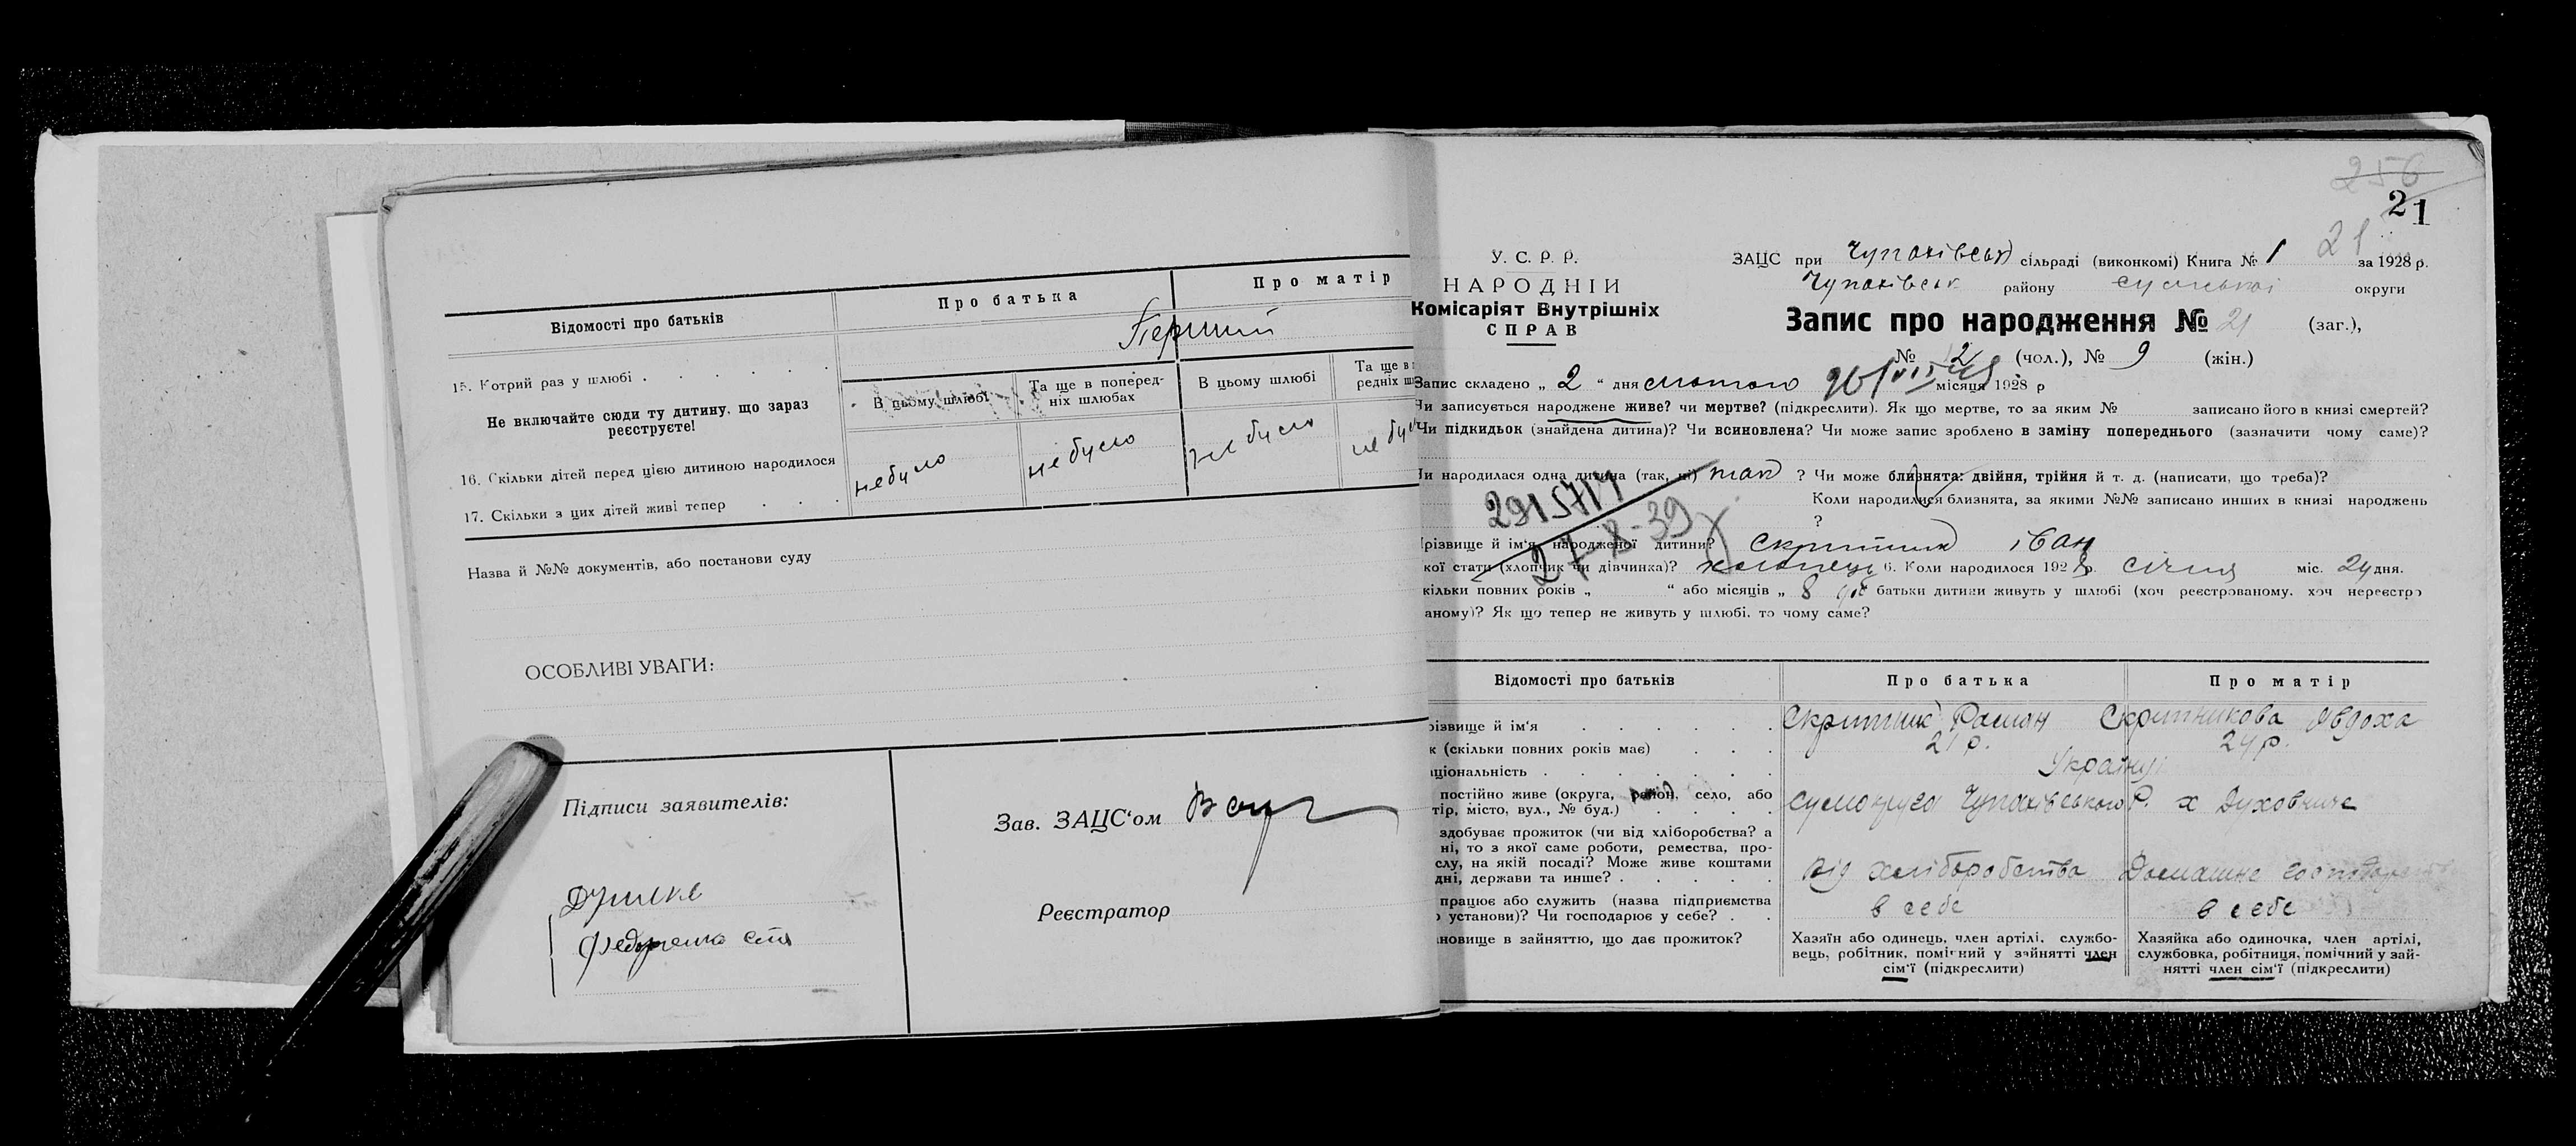 Відомості про батьків
Про батька
Про матір
15. Котрий раз у шлюбі
Перший
Не включайте сюди ту дитину, що зараз
реєструєте!
В цьому шлюбі
Та ще в поперед-
ніх шлюбах
В цьому шлюбі
Та ще в
редніх
16. Скільки дітей перед цією дитиною народилося
небуло
не було
не було
не
17. Скільки з цих дітей живі тепер
Назва й №№ документів, або постанови суду
ОСОБЛИВІ УВАГИ:
Підписи заявителів:
Зав. ЗАЦС‘ом
Реєстратор
256
21
21
У. С. Р. Р.
НАРОДНІЙ
Комісаріят Внутрішніх
СПРАВ
ЗАЦС при Чупахівськ сільраді (виконкомі) Книга № 1 за 1928 р.
Чупахівськ району сумської округи
Запис про народження № 21 (заг.),
№ 12 (чол.), № 9 (жін.)
Запис складено „ 2 “ дня лютого місяця 1928 р
Чи записується народжене живе? чи мертве? (підкреслити). Як що мертве, то за яким № записано його в книзі смертей?
Чи підкидьок (знайдена дитина)? Чи всиновлена? Чи може запис зроблено в заміну попереднього (зазначити чому саме)?
Чи народилася одна дитина (так, ні) так ? Чи може близнята: двійня, трійня й т. д. (написати, що треба)?
Коли народилися близнята, за якими №№ записано инших в книзі народжень
?
2915717
27-X-39
різвище й ім‘я народженої дитини? Скритник іван
кої стати (хлопчик чи дівчинка)? хлопець 6. Коли народилося 1928 р. січня міс. 24 дня.
кільки повних років „ “ або місяців „ 8 батьки дитини живуть у шлюбі (хоч реєстрованому, хоч нереєстро
аному)? Як що тепер не живуть у шлюбі, то чому саме?
Відомості про батьків
Про батька
Про матір
різвище й ім‘я
Скритник Роман
Скритникова Явдоха
к (скільки повних років має)
21 р.
24 р.
ціональність
Українці
постійно живе (округа, район, село, або
тір, місто, вул., № буд.)
Чупахівського Р. х Духовчине
здобуває прожиток (чи від хліборобства? а
ні, то з якої саме роботи, ремества, про-
слу, на якій посаді? Може живе коштами
дні, держави та инше?
Від хліборобства
Домашне
працює або служить (назва підприємства
установи)? Чи господарює у себе?
в себе
в себе
новище в зайняттю, що дає прожиток?
Хазяїн або одинець, член артілі, службо-
вець, робітник, помічний у зайнятті член
сім‘ї (підкреслити)
Хазяйка або одиночка, член артілі,
службовка, робітниця, помічний у зай-
нятті член сім‘ї (підкреслити)